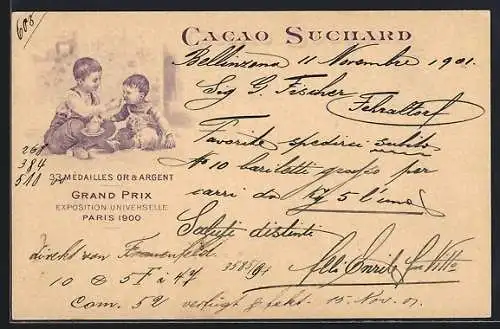 608
CACAO SUCHARD
Bellinzona 11 Novembre 1901.
Sig G. Fischer
Fehraltorf
Favorite spedirci subito
No 10 bariletti grasso per
carri da Kg 5 l'uno
Saluti distinti
268
384
510
33 MÉDAILLES OR & ARGENT
GRAND PRIX
EXPOSITION UNIVERSELLE
PARIS 1900
Direkt von Frauenfeld
10 5 47
Com. 52 verfügt & fakt. 15. Nov. 01.